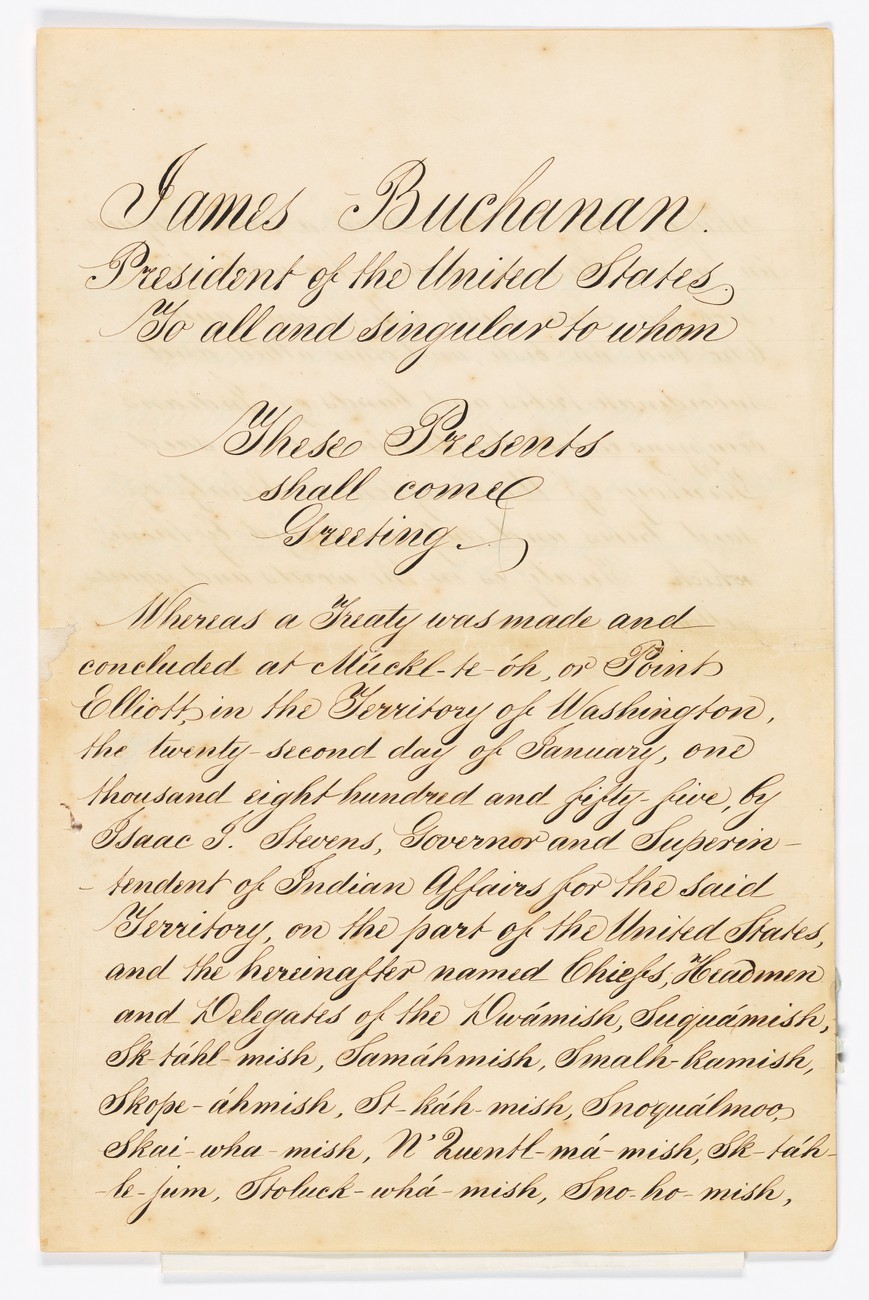 James Buchanan.
President of the United States,
To all and singular to whom
These Presents
shall come
Greeting.
Whereas a Treaty was made and
concluded at Múckl-te-óh, or Point
Elliott, in the Territory of Washington,
the twenty-second day of January, one
thousand eight hundred and fifty-five, by
Isaac I. Stevens, Governor and Superin-
-tendent of Indian Affairs for the said
Territory, on the part of the United States,
and the hereinafter named Chiefs, Headmen
and Delegates of the Dwámish, Suquámish,
Sk-táhl-mish, Samáhmish, Smalh-kamish,
Skope-áhmish, St-káh-mish, Snoquálmoo,
Skai-wha-mish, N'Quentl-má-mish, Sk-táh-
-le-jum, Stoluck-whá-mish, Sno-ho-mish,